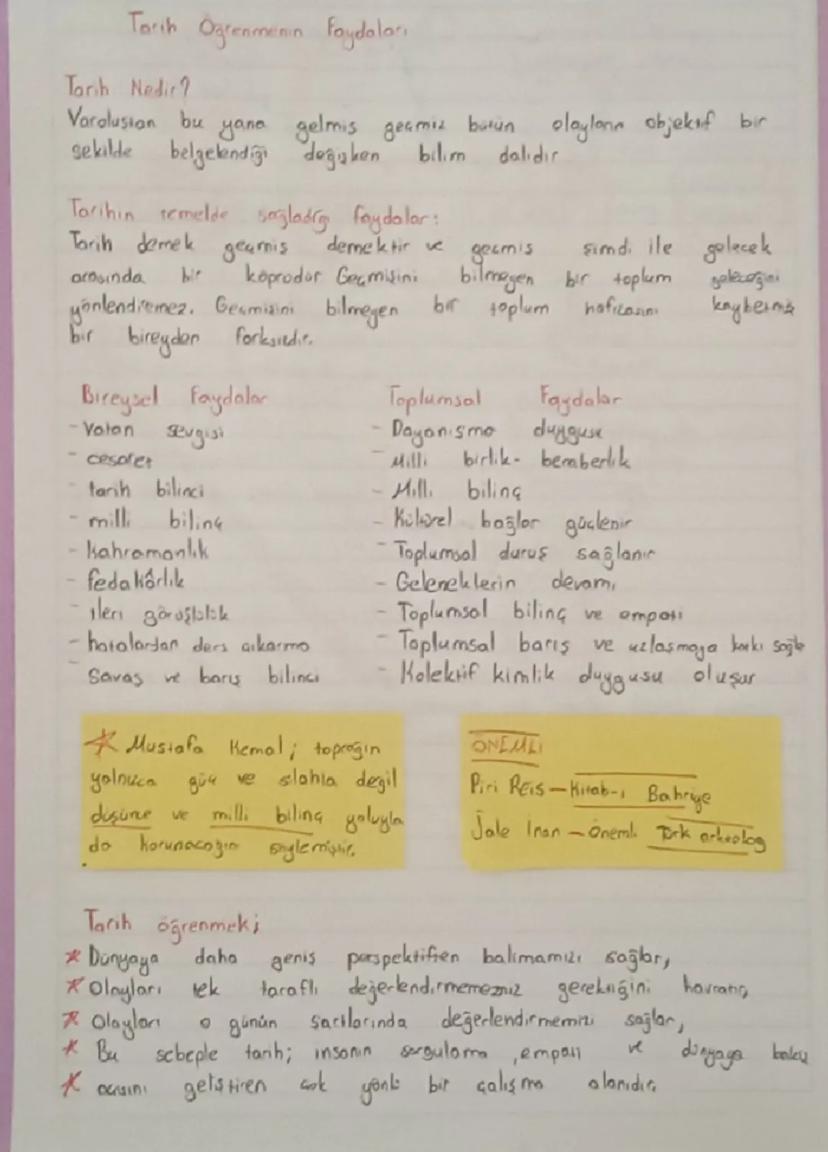 Tarih Öğrenmenin Faydaları
Tarih Nedir?
Varoluştan bu yana gelmiş geçmiş bütün olayların objektif bir
şekilde belgelendiği değişken bilim dalıdır
Tarihin temelde sağladığı faydalar:
Tarih demek geçmiş demektir ve geçmiş şimdi ile gelecek
arasında bir köprüdür Geçmişini bilmeyen bir toplum geleceğini
yönlendiremez. Geçmişini bilmeyen bir toplum hafızasını kaybetmiş
bir bireyden farksızdır.
Bireysel Faydalar
- Vatan sevgisi
- cesaret
- tarih bilinci
- milli bilinç
- Kahramanlık
- fedakârlık
- ileri görüşlülük
- hatalardan ders çıkarma
- Savaş ve barış bilinci
Toplumsal Faydalar
- Dayanışma duygusu
- Milli birlik- bemberlik
- Milli bilinç
- Kültürel bağlar güçlenir
- Toplumsal duruş sağlanır
- Geleneklerin devamı
- Toplumsal bilinç ve empati
- Toplumsal barış ve uzlaşmaya katkı sağlar
- Kolektif kimlik duygusu oluşur
* Mustafa Kemal; toprağın
yalnızca güç ve silahla değil
düşünce ve milli bilinç yoluyla
da korunacağını söylemiştir.
ÖNEMLİ
Piri Reis - Kitab-ı Bahriye
Jale İnan - Önemli Türk arkeolog
Tarih öğrenmek;
* Dünyaya daha geniş perspektiften bakmamızı sağlar,
* Olayları tek taraflı değerlendirmememiz gerektiğini
* Olayları o günün şartlarında değerlendirmemizi sağlar,
* Bu sebeple tarih; insanın sorgulama, empati ve dünyaya bakış
* açısını geliştiren çok yönlü bir çalışma alanıdır.